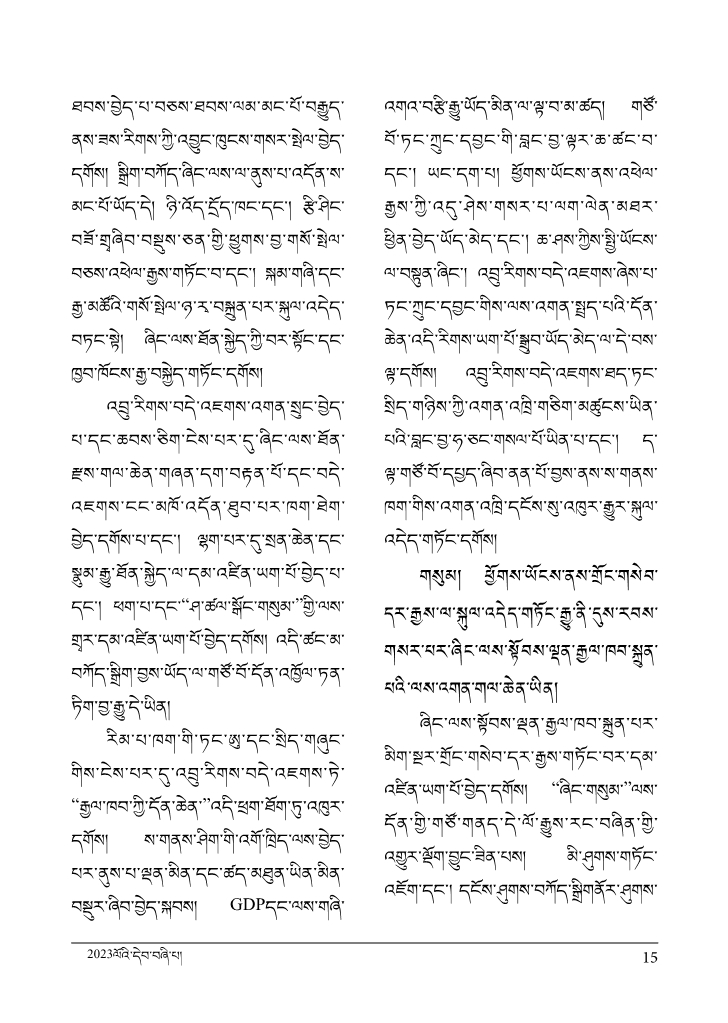 ཐབས་བྱེད་པ་བཅས་ཐབས་ལམ་མང་པོ་བརྒྱུད་
ནས་ཟས་རིགས་ཀྱི་འབྱུང་ཁུངས་གསར་སྤེལ་བྱེད་
དགོས། སྒྲིག་བཀོད་ཞིང་ལས་ལ་ནུས་པ་འདོན་ས་
མང་པོ་ཡོད་དེ། ཉི་འོད་དྲོད་ཁང་དང་། རྩི་ཤིང་
བཟོ་གྲྭཞིབ་བསྡུས་ཅན་གྱི་ཕྱུགས་བྱ་གསོ་སྤེལ་
བཅས་འཕེལ་རྒྱས་གཏོང་བ་དང་། སྐམ་གཞི་དང་
རྒྱ་མཚོའི་གསོ་སྤེལ་ཉ་ར་བསྐྲུན་པར་སྐུལ་འདེད་
བཏང་སྟེ། ཞིང་ལས་ཐོན་སྐྱེད་ཀྱི་བར་སྟོང་དང་
ཁྱབ་ཁོངས་རྒྱ་བསྐྱེད་གཏོང་དགོས།
འབྲུ་རིགས་བདེ་འཇགས་འགན་སྲུང་བྱེད་
པ་དང་ཆབས་ཅིག་ངེས་པར་དུ་ཞིང་ལས་ཐོན་
རྫས་གལ་ཆེན་གཞན་དག་བརྟན་པོ་དང་བདེ་
འཇགས་ངང་མཁོ་འདོན་ཐུབ་པར་ཁག་ཐེག་
བྱེད་དགོས་པ་དང་། ལྷག་པར་དུ་སྲན་ཆེན་དང་
སྣུམ་རྒྱུ་ཐོན་སྐྱེད་ལ་དམ་འཛིན་ཡག་པོ་བྱེད་པ་
དང་། ཕག་པ་དང་“ཤ་ཚལ་སྒོང་གསུམ་”གྱི་ལས་
གྲྭར་དམ་འཛིན་ཡག་པོ་བྱེད་དགོས། འདི་ཚང་མ་
བཀོད་སྒྲིག་བྱས་ཡོད་ལ་གཙོ་བོ་དོན་འཁྱོལ་ཏན་
ཏིག་བྱ་རྒྱུ་དེ་ཡིན།
རིམ་པ་ཁག་གི་ཏང་ཨུ་དང་སྲིད་གཞུང་
གིས་ངེས་པར་དུ་འབྲུ་རིགས་བདེ་འཇགས་ཏེ་
“རྒྱལ་ཁབ་ཀྱི་དོན་ཆེན་”འདི་ཕྲག་ཐོག་ཏུ་འཁུར་
དགོས། ས་གནས་ཤིག་གི་འགོ་ཁྲིད་ལས་བྱེད་
པར་ནུས་པ་ལྡན་མིན་དང་ཚད་མཐུན་ཡིན་མིན་
བསྡུར་ཞིབ་བྱེད་སྐབས། GDPདང་ལས་གཞི་
འགའ་བརྩི་རྒྱུ་ཡོད་མིན་ལ་ལྟ་བ་མ་ཚད། གཙོ་
བོ་ཏང་ཀྲུང་དབྱང་གི་བླང་བྱ་ལྟར་ཆ་ཚང་བ་
དང་། ཡང་དག་པ། ཕྱོགས་ཡོངས་ནས་འཕེལ་
རྒྱས་ཀྱི་འདུ་ཤེས་གསར་པ་ལག་ལེན་མཐར་
ཕྱིན་བྱེད་ཡོད་མེད་དང་། ཆ་ཤས་ཀྱིས་སྤྱི་ཡོངས་
ལ་བསྟུན་ཞིང་། འབྲུ་རིགས་བདེ་འཇགས་ཞེས་པ་
ཏང་ཀྲུང་དབྱང་གིས་ལས་འགན་སྤྲད་པའི་དོན་
ཆེན་འདི་རིགས་ཡག་པོ་སྒྲུབ་ཡོད་མེད་ལ་དེ་བས་
ལྟ་དགོས། འབྲུ་རིགས་བདེ་འཇགས་ཐད་ཏང་
སྲིད་གཉིས་ཀྱི་འགན་འཁྲི་གཅིག་མཚུངས་ཡིན་
པའི་བླང་བྱ་ཧ་ཅང་གསལ་པོ་ཡིན་པ་དང་། ད་
ལྟ་གཙོ་བོ་དཔྱད་ཞིབ་ནན་པོ་བྱས་ནས་ས་གནས་
ཁག་གིས་འགན་འཁྲི་དངོས་སུ་འཁུར་རྒྱུར་སྐུལ་
འདེད་གཏོང་དགོས།
གསུམ། ཕྱོགས་ཡོངས་ནས་གྲོང་གསེབ་
དར་རྒྱས་ལ་སྐུལ་འདེད་གཏོང་རྒྱུ་ནི་དུས་རབས་
གསར་པར་ཞིང་ལས་སྟོབས་ལྡན་རྒྱལ་ཁབ་སྐྲུན་
པའི་ལས་འགན་གལ་ཆེན་ཡིན།
ཞིང་ལས་སྟོབས་ལྡན་རྒྱལ་ཁབ་སྐྲུན་པར་
མིག་སྔར་གྲོང་གསེབ་དར་རྒྱས་གཏོང་བར་དམ་
འཛིན་ཡག་པོ་བྱེད་དགོས། “ཞིང་གསུམ་”ལས་
དོན་གྱི་གཙོ་གནད་དེ་ལོ་རྒྱུས་རང་བཞིན་གྱི་
འགྱུར་ལྡོག་བྱུང་ཟིན་པས། མི་ཤུགས་གཏོང་
འཇོག་དང་། དངོས་ཤུགས་བཀོད་སྒྲིགནོར་ཤུགས་
2023ལོའི་དེབ་བཞི་པ།
15